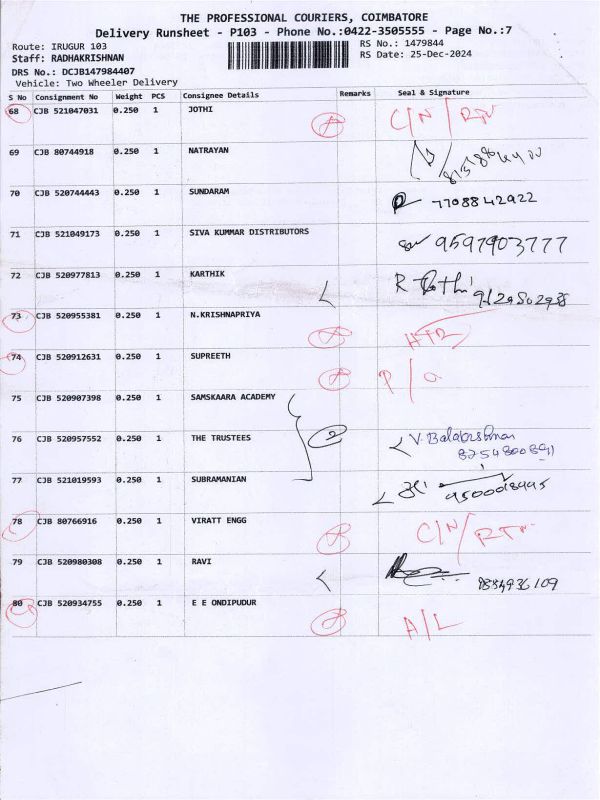 THE PROFESSIONAL COURIERS, COIMBATORE
Delivery Runsheet - P103 - Phone No.:0422-3505555 - Page No.:7
Route: IRUGUR 103
RS No.: 1479844
Staff: RADHAKRISHNAN
RS Date: 25-Dec-2024
DRS No.: DCJB147984407
Vehicle: Two Wheeler Delivery
S No Consignment No Weight PCS Consignee Details Remarks Seal & Signature
68 CJB 521047031 0.250 1 JOTHI C/N/RTN
69 CJB 80744918 0.250 1 NATRAYAN
70 CJB 520744443 0.250 1 SUNDARAM 7708842922
71 CJB 521049173 0.250 1 SIVA KUMMAR DISTRIBUTORS 9597903777
72 CJB 520977813 0.250 1 KARTHIK
73 CJB 520955381 0.250 1 N.KRISHNAPRIYA
74 CJB 520912631 0.250 1 SUPREETH P/a
75 CJB 520907398 0.250 1 SAMSKAARA ACADEMY
76 CJB 520957552 0.250 1 THE TRUSTEES 2 V. Balakrishnan
77 CJB 521019593 0.250 1 SUBRAMANIAN
78 CJB 80766916 0.250 1 VIRATT ENGG C/N/RTN
79 CJB 520980308 0.250 1 RAVI
80 CJB 520934755 0.250 1 E E ONDIPUDUR A/L